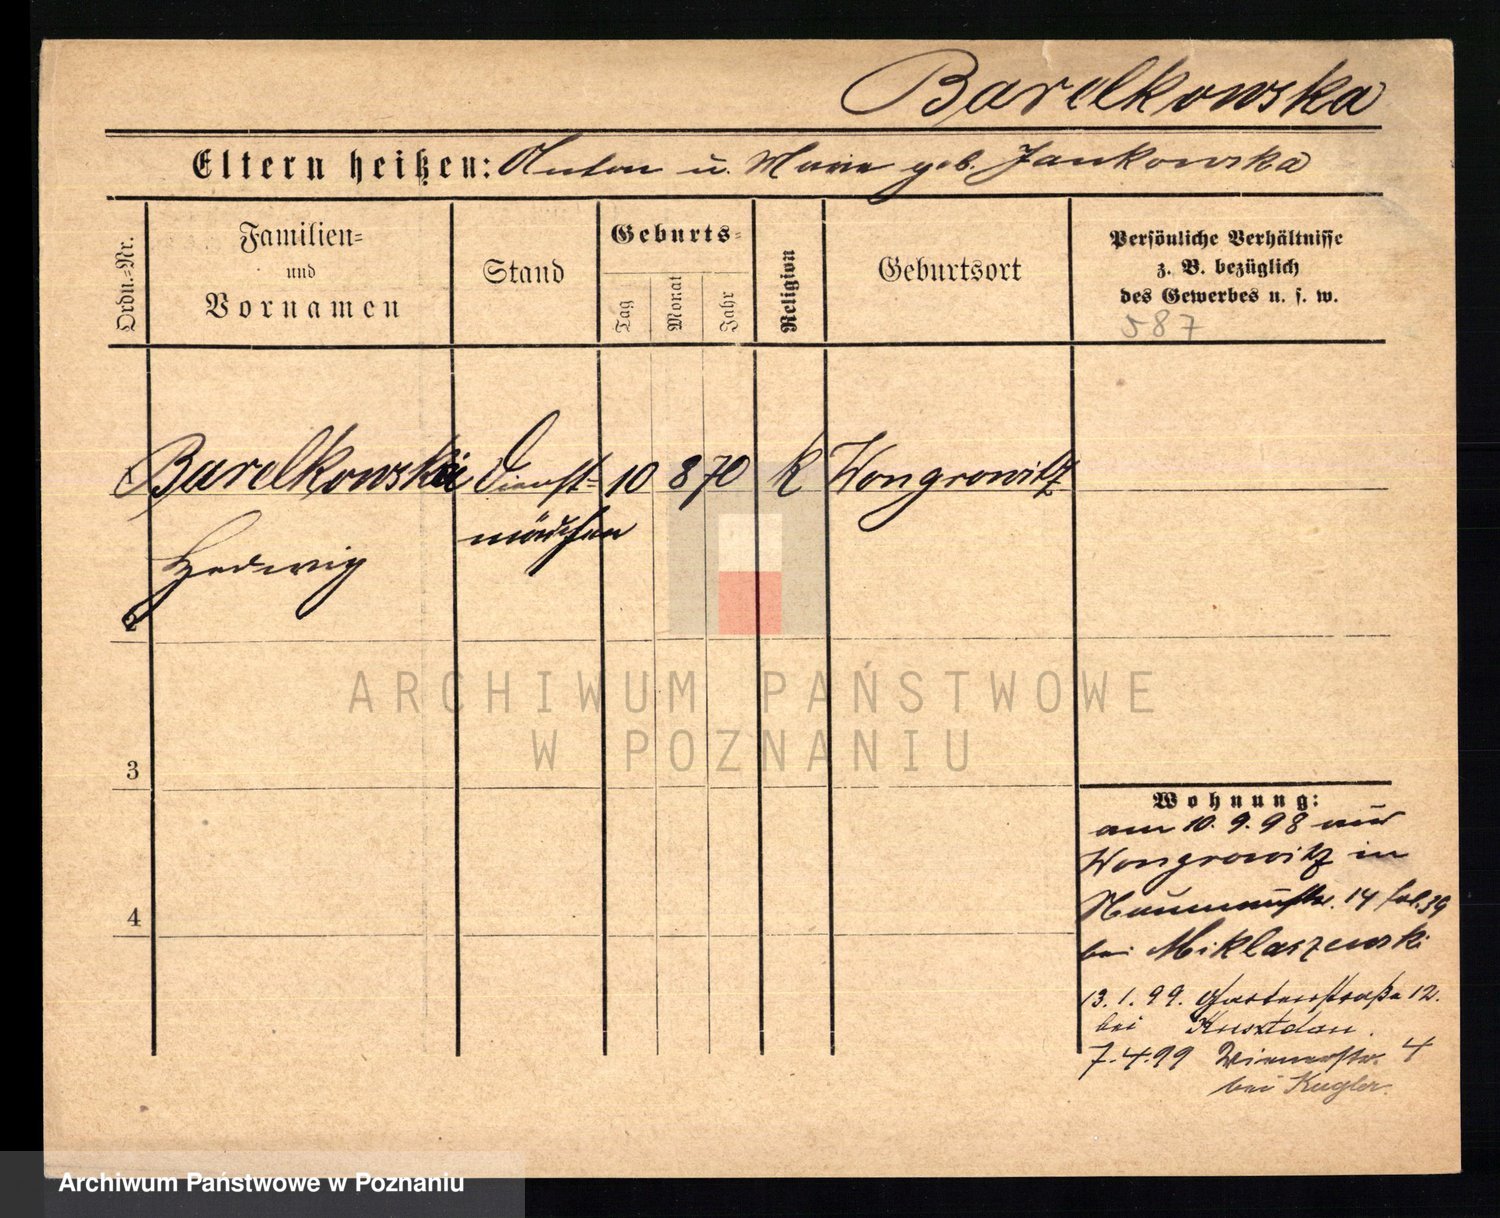 Barelkowska
Eltern heißen: Anton u. Marie geb. Jankowska
Ordn.=Nr.
Familien=
und
Vornamen
Stand
Geburts=
Tag
Monat
Jahr
Religion
Geburtsort
Persönliche Verhältnisse
z. B. bezüglich
des Gewerbes u. s. w.
587
Barelkowska Dienst= 10 8 70 k Wongrowitz
mädchen
Hedwig
2
3
4
Wohnung:
am 10. 9. 98 aus
Wongrowitz in
14 fol. 39
bei Miklaszewski
13. 1. 99. Gartenstraße 12.
bei
7. 4. 99 Wienerstr. 4
bei Kugler.
ARCHIWUM PAŃSTWOWE
W POZNANIU
Archiwum Państwowe w Poznaniu